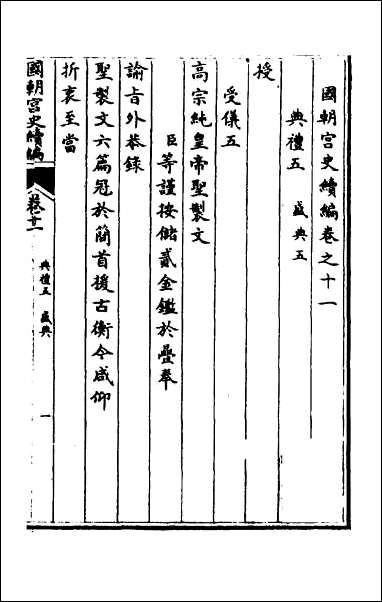 國朝宮史續編卷之十一
典禮五 盛典五
授
受儀五
高宗純皇帝聖製文
臣等謹按儲貳金鑑於疊奉
諭旨外恭錄
聖製文六篇冠於簡首援古衡今咸仰
折衷至當
國朝宮史續編
卷十一
典禮五 盛典
一